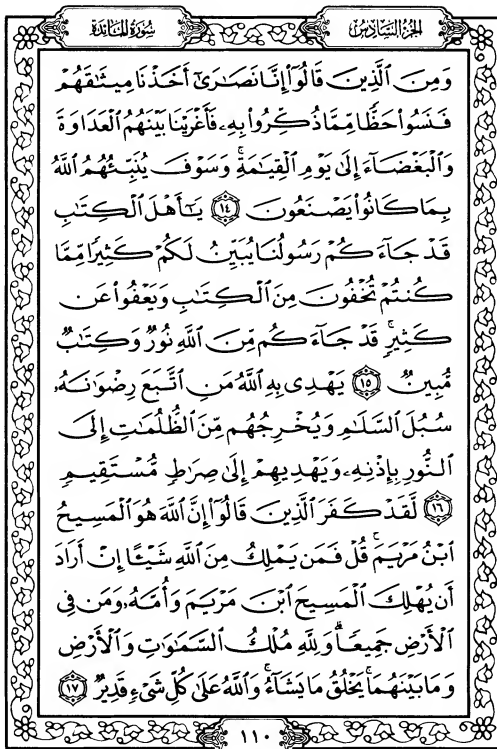 الجزء السادس
سورة المائدة
وَمِنَ ٱلَّذِينَ قَالُوٓا۟ إِنَّا نَصَٰرَىٰٓ أَخَذْنَا مِيثَٰقَهُمْ
فَنَسُوا۟ حَظًّا مِّمَّا ذُكِّرُوا۟ بِهِۦ فَأَغْرَيْنَا بَيْنَهُمُ ٱلْعَدَاوَةَ
وَٱلْبَغْضَآءَ إِلَىٰ يَوْمِ ٱلْقِيَٰمَةِ ۚ وَسَوْفَ يُنَبِّئُهُمُ ٱللَّهُ
بِمَا كَانُوا۟ يَصْنَعُونَ ١٤ يَٰٓأَهْلَ ٱلْكِتَٰبِ
قَدْ جَآءَكُمْ رَسُولُنَا يُبَيِّنُ لَكُمْ كَثِيرًا مِّمَّا
كُنتُمْ تُخْفُونَ مِنَ ٱلْكِتَٰبِ وَيَعْفُوا۟ عَن
كَثِيرٍ ۚ قَدْ جَآءَكُم مِّنَ ٱللَّهِ نُورٌ وَكِتَٰبٌ
مُّبِينٌ ١٥ يَهْدِى بِهِ ٱللَّهُ مَنِ ٱتَّبَعَ رِضْوَٰنَهُۥ
سُبُلَ ٱلسَّلَٰمِ وَيُخْرِجُهُم مِّنَ ٱلظُّلُمَٰتِ إِلَى
ٱلنُّورِ بِإِذْنِهِۦ وَيَهْدِيهِمْ إِلَىٰ صِرَٰطٍ مُّسْتَقِيمٍ
١٦ لَّقَدْ كَفَرَ ٱلَّذِينَ قَالُوٓا۟ إِنَّ ٱللَّهَ هُوَ ٱلْمَسِيحُ
ٱبْنُ مَرْيَمَ ۚ قُلْ فَمَن يَمْلِكُ مِنَ ٱللَّهِ شَيْـًٔا إِنْ أَرَادَ
أَن يُهْلِكَ ٱلْمَسِيحَ ٱبْنَ مَرْيَمَ وَأُمَّهُۥ وَمَن فِى
ٱلْأَرْضِ جَمِيعًا ۗ وَلِلَّهِ مُلْكُ ٱلسَّمَٰوَٰتِ وَٱلْأَرْضِ
وَمَا بَيْنَهُمَا ۚ يَخْلُقُ مَا يَشَآءُ ۚ وَٱللَّهُ عَلَىٰ كُلِّ شَىْءٍ قَدِيرٌ ١٧
١١٠